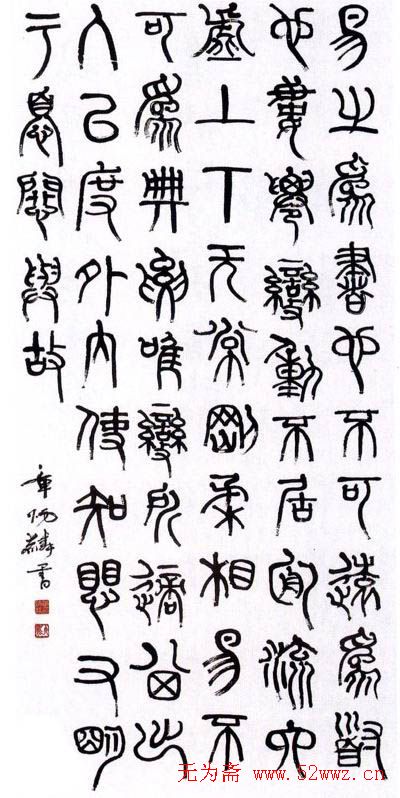 易之為書也不可遠為道
也屢遷變動不居周流六
虛上下无常剛柔相易不
可為典要唯變所適其出
入以度外內使知愳又明
于憂患與故
章炳麟書
无为斋 www.52wwz.cn